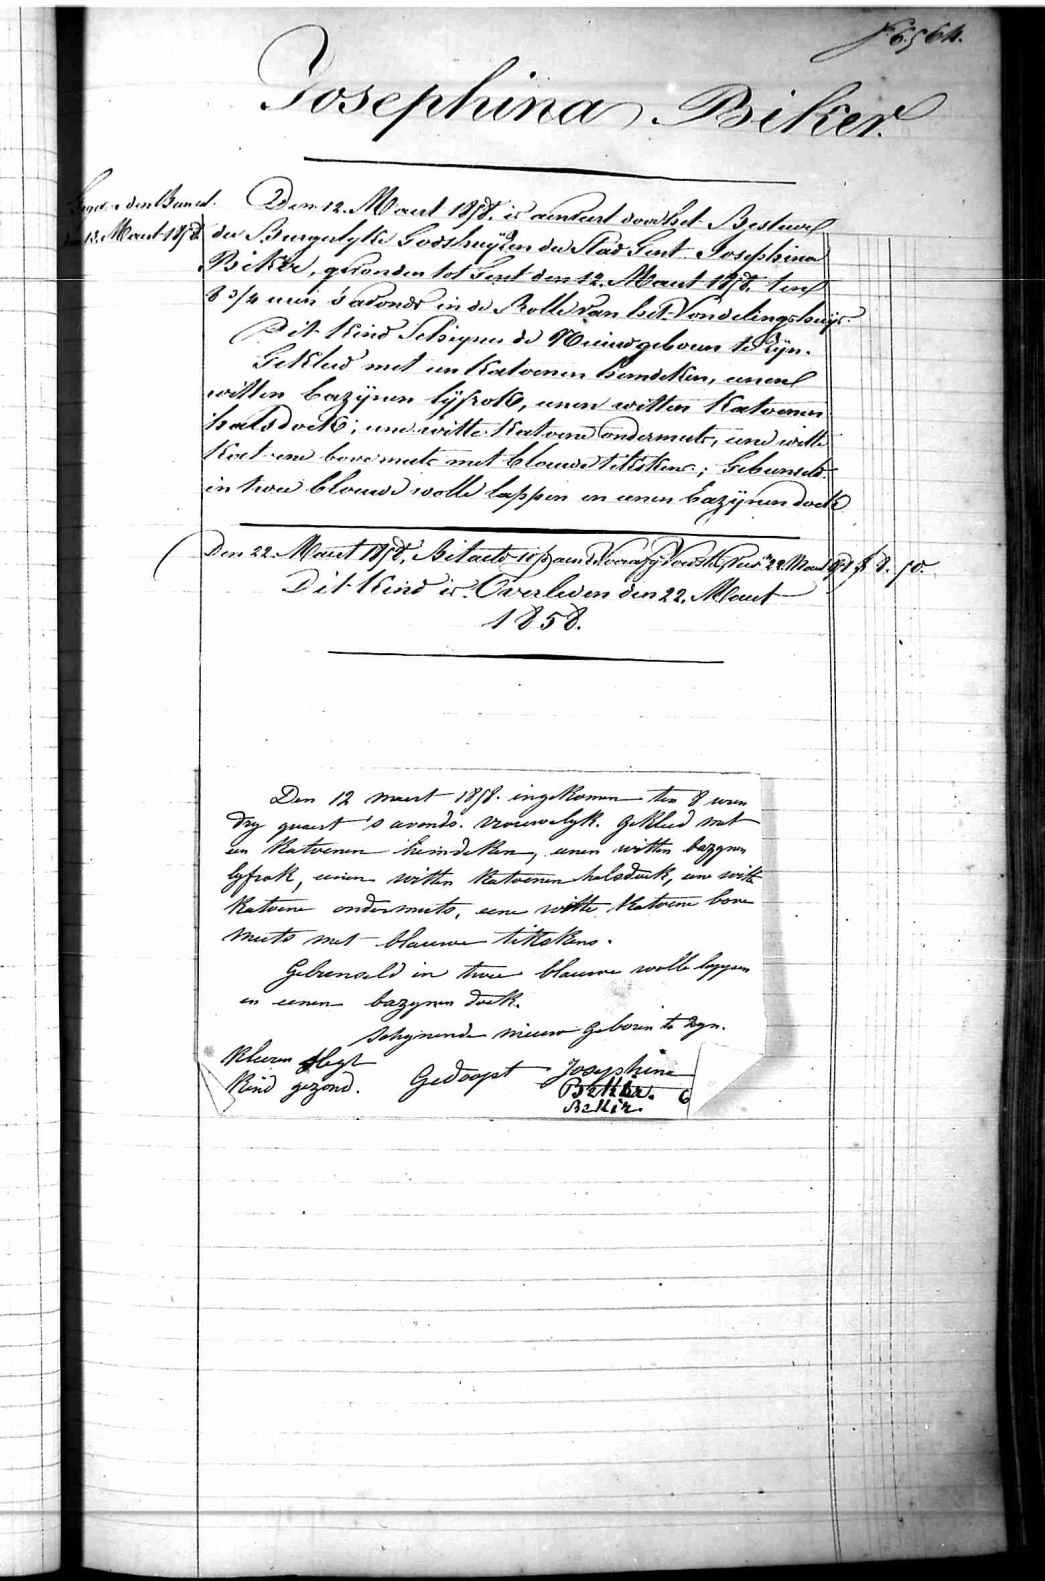 6564.
Josephina Biker.
den Bu
13. Maart 1858
Den 12. Maart 1858. is aenveerd door het Bestuur
der Burgerlyke Godshuyzen der Stad Gent Josephina
Biker, gevonden tot Gent den 12. Maart 1858. ten
8 3/4 uren 's avonds in de Rolle van het Vondelingshuys.
Dit Kind Schynende Nieuwgeboren te Zyn.
Gekleed met een Katoenen hemdeken, eenen
witten bazynen lyfrok, eenen witten Katoenen
halsdoek, eene witte Katoene ondermuts, eene witte
Kat-ene bovemuts met blauwe titskens; Gebunseld
in twee blauwe wolle lappen en eenen bazynen doek
Den 22. Maart 1858. 22 Maart 8. 50.
Dit Kind is Overleden den 22. Maart
1858.
Den 12 meert 1858. ingekomen ten 8 uren
dry quaert 's avonds. vrouwelyk. gekleed met
een Katoenen hemdeken, eenen witten bazynen
lyfrok, eenen witten Katoenen halsdoek, eene witte
Katoene ondermuts, eene witte Katoene bove
muts met blauwe titskens.
Gebunseld in twee blauwe wolle lappen
en eenen bazynen doek.
Schynende nieuw geboren te zyn.
Kleeren slegt
Kind gezond. Gedoopt Josephina
Bekker. 6
Bekir.